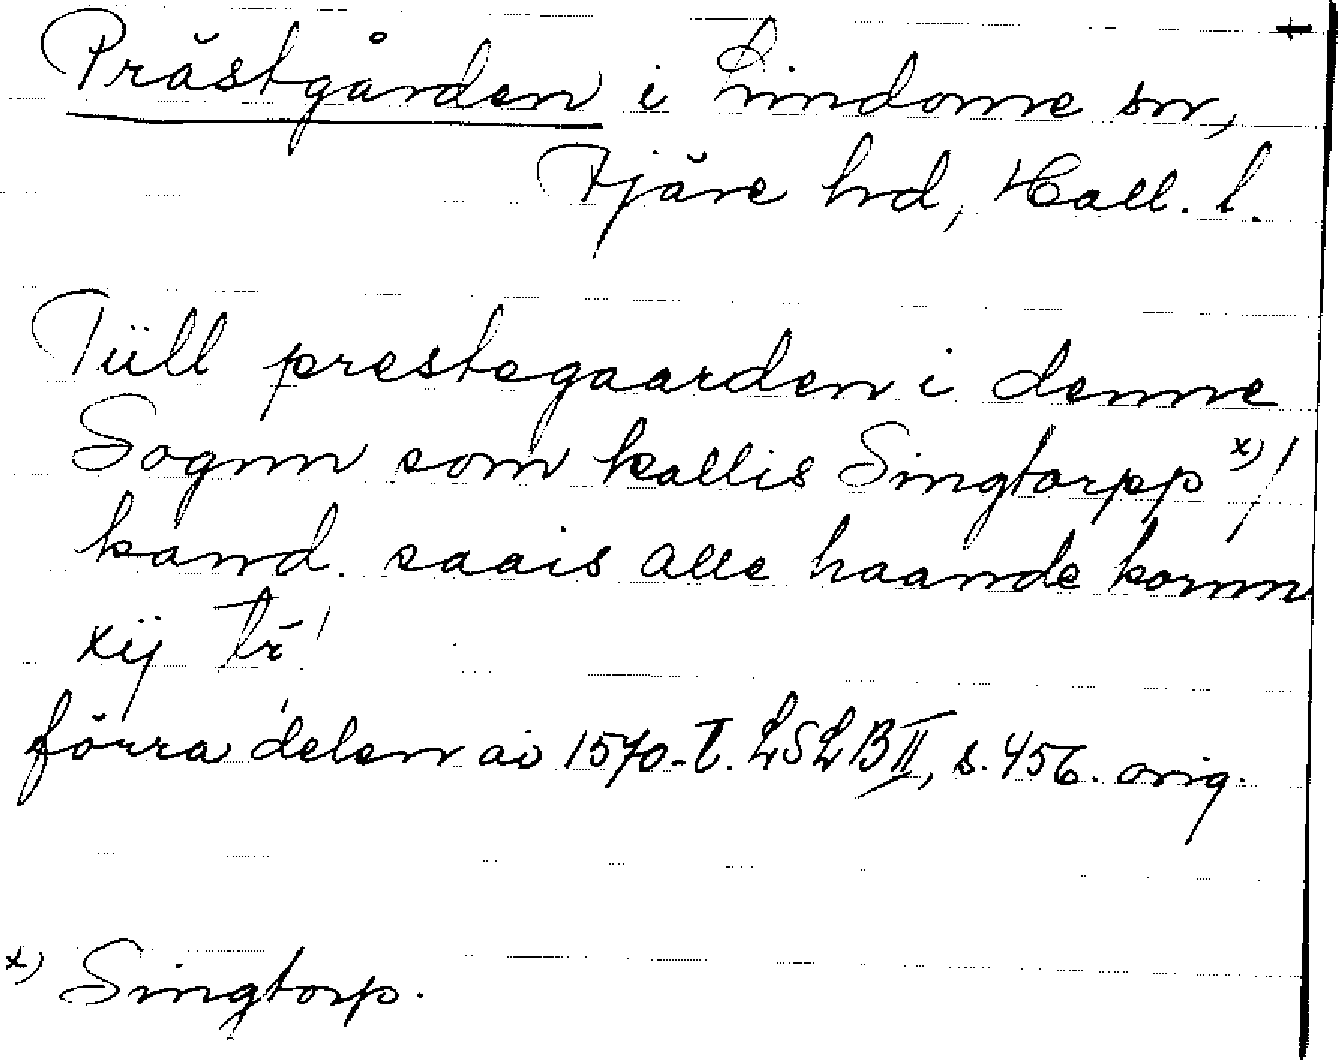 Prästgården i Lindome sn,
Fjäre hrd, Hall. l.
Tüll prestegaarden i denne
Sognn som kallis Singtorpp x) /
kand. saais alle haande kornn
xij tr̄ /
förra delen av 1570-t. LSLB II, s. 456. orig.
x) Singtorp.